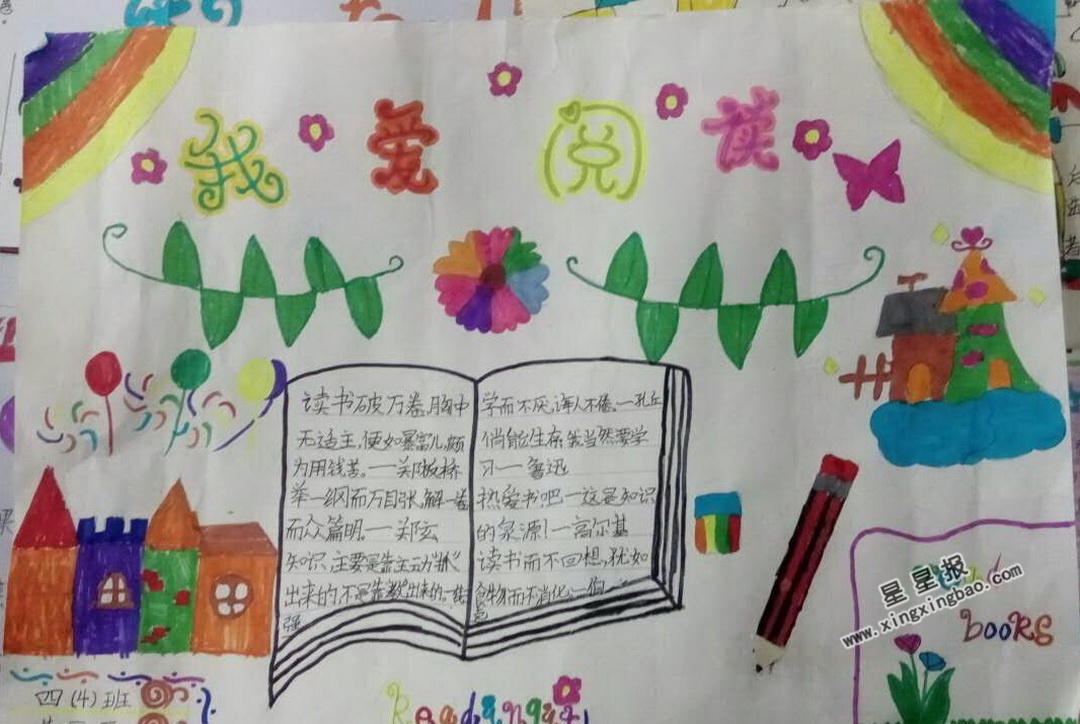 我爱阅读
读书破万卷,胸中
无适主,便如暴富儿,颇
为用钱苦。一郑板桥
举一纲而万目张,解一卷
而众篇明。一郑玄
知识,主要是靠主动"抓"
出来的,不是靠教出来的。一钱
强
学而不厌,诲人不倦。一孔丘
倘能生存,我当然要学
习一鲁迅
热爱书吧一这是知识
的泉源!一高尔基
读书而不回想,犹如
食物而不消化。一伯
克
星星报
www.xingxingbao.com
books
四(4)班
Reading